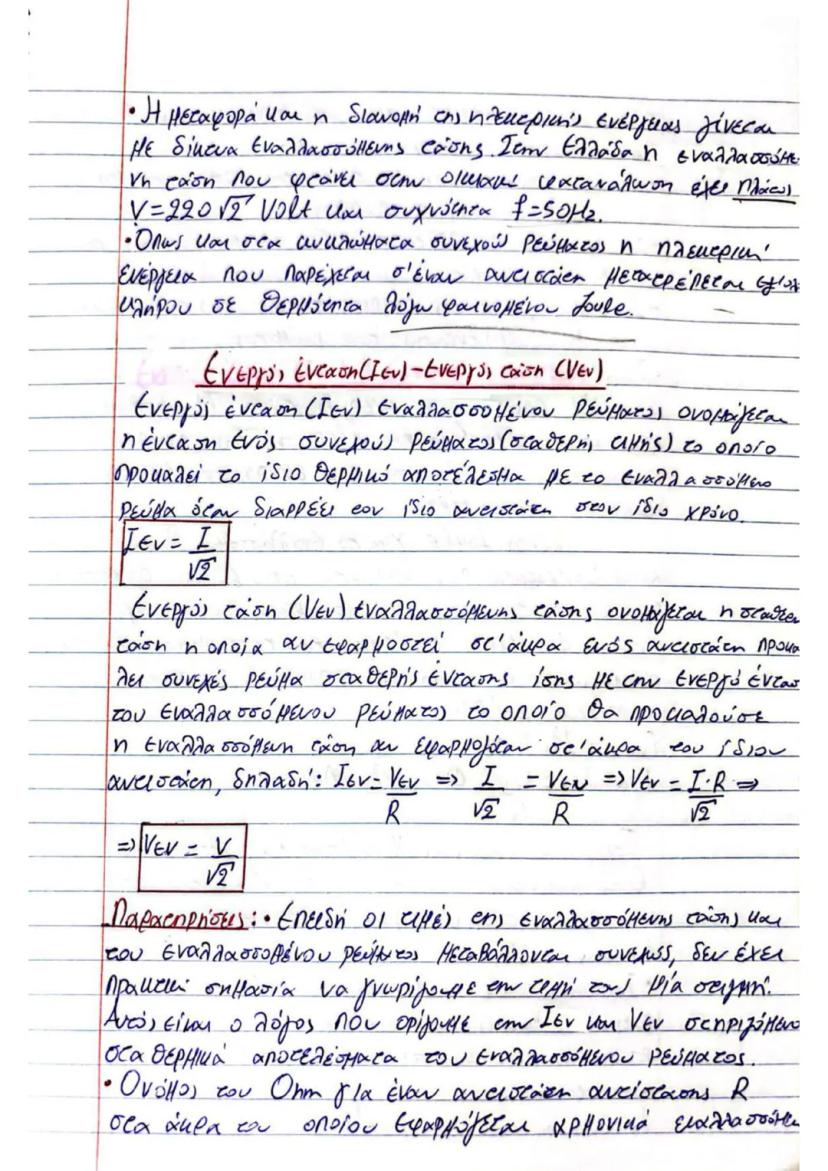 • Η μεταφορά και η διανομή της ηλεκτρικής ενέργειας γίνεται
με δίκτυα εναλλασσόμενης τάσης. Στην Ελλάδα η εναλλασσόμε
νη τάση που φτάνει στην οικιακή κατανάλωση έχει πλάτος
V=220√2 Volt και συχνότητα f=50Hz.
• Όπως και στα κυκλώματα συνεχούς ρεύματος η ηλεκτρική
ενέργεια που παρέχεται σ'έναν αντιστάτη μετατρέπεται εξ'ολ
κλήρου σε θερμότητα λόγω φαινομένου Joule.
Ενεργός ένταση(Ιεν)-Ενεργός τάση (Vεν)
Ενεργός ένταση (Ιεν) εναλλασσομένου ρεύματος ονομάζεται
η ένταση ενός συνεχούς ρεύματος (σταθερής τιμής) το οποίο
προκαλεί το ίδιο θερμικό αποτέλεσμα με το εναλλασσόμενο
ρεύμα όταν διαρρέει τον ίδιο αντιστάτη στον ίδιο χρόνο.
Ιεν = I/√2
Ενεργός τάση (Vεν) εναλλασσόμενης τάσης ονομάζεται η σταθε
τάση η οποία αν εφαρμοστεί στ'άκρα ενός αντιστάτη προκα
λεί συνεχές ρεύμα σταθερής έντασης ίσης με την ενεργό έντασ
του εναλλασσόμενου ρεύματος το οποίο θα προκαλούσε
η εναλλασσόμενη τάση αν εφαρμοζόταν στ'άκρα του ίδιου
αντιστάτη, δηλαδή: Ιεν = Vεν/R ⇒ I/√2 = Vεν/R ⇒ Vεν = I·R/√2 ⇒
⇒ Vεν = V/√2
Παρατηρήσεις: • Επειδή οι τιμές της εναλλασσόμενης τάσης και
του εναλλασσομένου ρεύματος μεταβάλλονται συνεχώς, δεν έχει
πρακτική σημασία να γνωρίζουμε την τιμή τους μία στιγμή.
Αυτός είναι ο λόγος που ορίζουμε την Ιεν και Vεν στηριζόμενο
στα θερμικά αποτελέσματα του εναλλασσόμενου ρεύματος.
• Ο νόμος του Ohm για έναν αντιστάτη αντίστασης R
στα άκρα του οποίου εφαρμόζεται αρμονικά εναλλασσόμεν